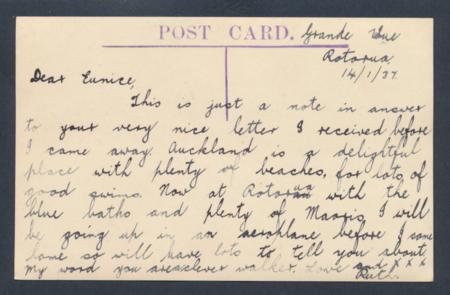 POST CARD.
Grande Vue
Rotorua
14/1/37.
Dear Eunice,
This is just a note in answer
to your very nice letter I received before
I came away. Auckland is a delightful
place with plenty of beaches, for lots of
good swims. Now at Rotorua with the
blue baths and plenty of Maoris. I will
be going up in an aeroplane before I come
home so will have lots to tell you about.
My word you are a clever walker. Love and x x x
Ruth.